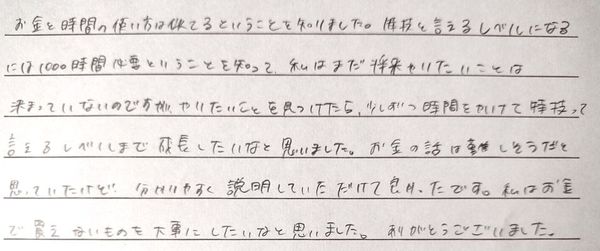 お金と時間の使い方は似てるということを知りました。特技と言えるレベルになる
には1000時間必要ということを知って、私はまだ将来やりたいことは
決まっていないのですが、やりたいことを見つけたら、少しずつ時間をかけて特技って
言えるレベルまで成長したいなと思いました。お金の話は難しそうだと
思っていたけど、分かりやすく説明していただけて良かったです。私はお金
で買えないものを大事にしたいなと思いました。ありがとうございました。